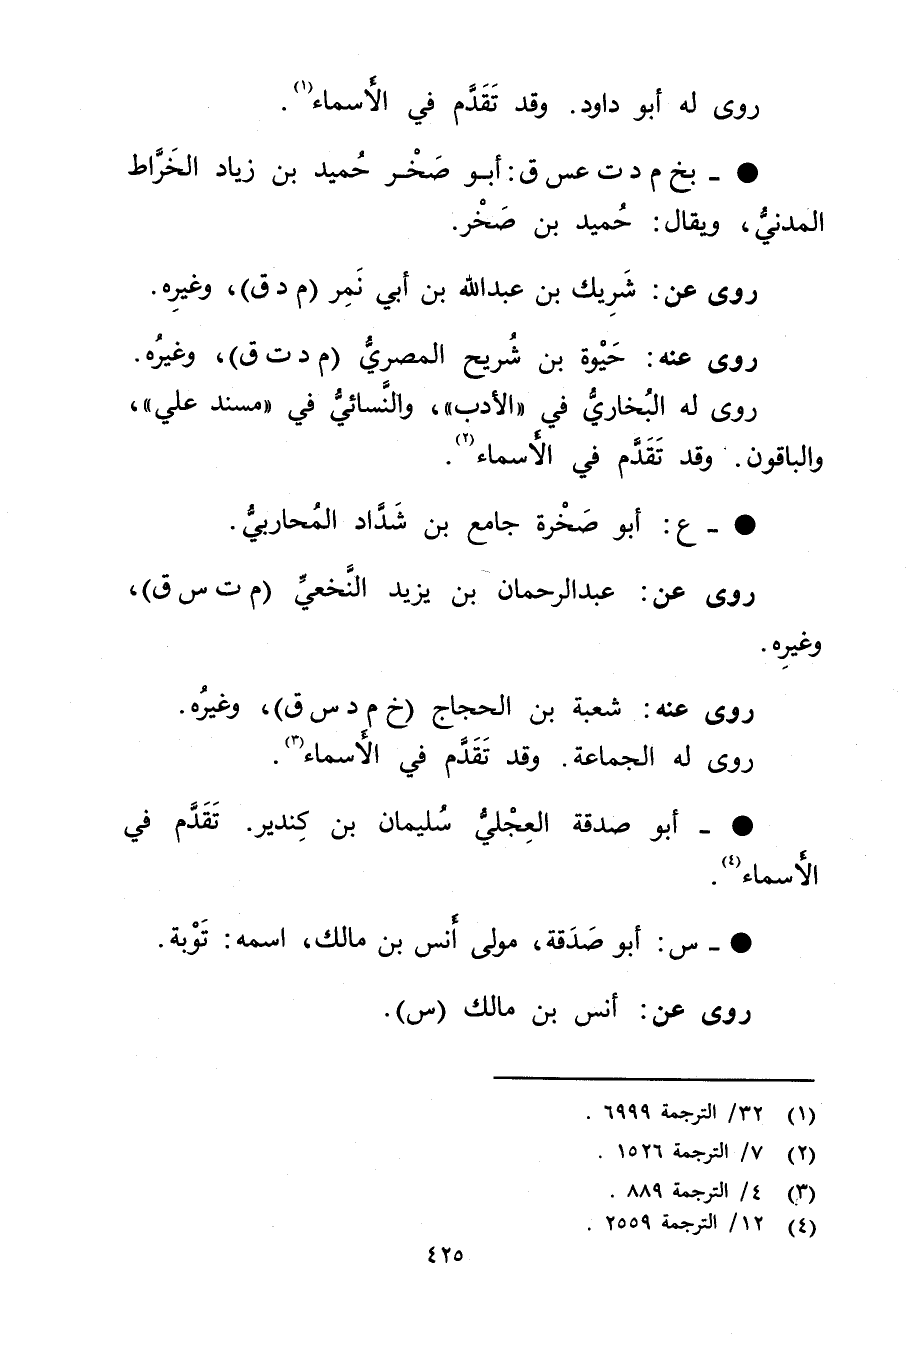 روى له أبو داود. وقد تَقَدَّم في الأَسماء(١).
● ـ بخ م د ت عس ق: أبـو صَخْـر حُميد بن زياد الخَرَّاط
المدنيُّ، ويقال: حُميد بن صَخْر.
روى عن: شَرِيك بن عبدالله بن أبي نَمِر (م د ق)، وغيرِه.
روى عنه: حَيْوة بن شُريح المصريُّ (م د ت ق)، وغيرُه.
روى له البُخاريُّ في «الأدب»، والنَّسائيُّ في «مسند علي»،
والباقون. وقد تَقَدَّم في الأَسماء(٢).
● ـ ع: أبو صَخْرة جامع بن شَدَّاد المُحاربيُّ.
روى عن: عبدالرحمان بن يزيد النَّخعيِّ (م ت س ق)،
وغيرِه.
روى عنه: شعبة بن الحجاج (خ م د س ق)، وغيرُه.
روى له الجماعة. وقد تَقَدَّم في الأَسماء(٣).
● ـ أبو صدقة العِجْليُّ سُليمان بن كِندير. تَقَدَّم في
الأَسماء(٤).
● ـ س: أبو صَدَقة، مولى أَنس بن مالك، اسمه: تَوْبة.
روى عن: أنس بن مالك (س).
(١) ٣٢/ الترجمة ٦٩٩٩ .
(٢) ٧/ الترجمة ١٥٢٦ .
(٣) ٤/ الترجمة ٨٨٩ .
(٤) ١٢/ الترجمة ٢٥٥٩ .
٤٢٥